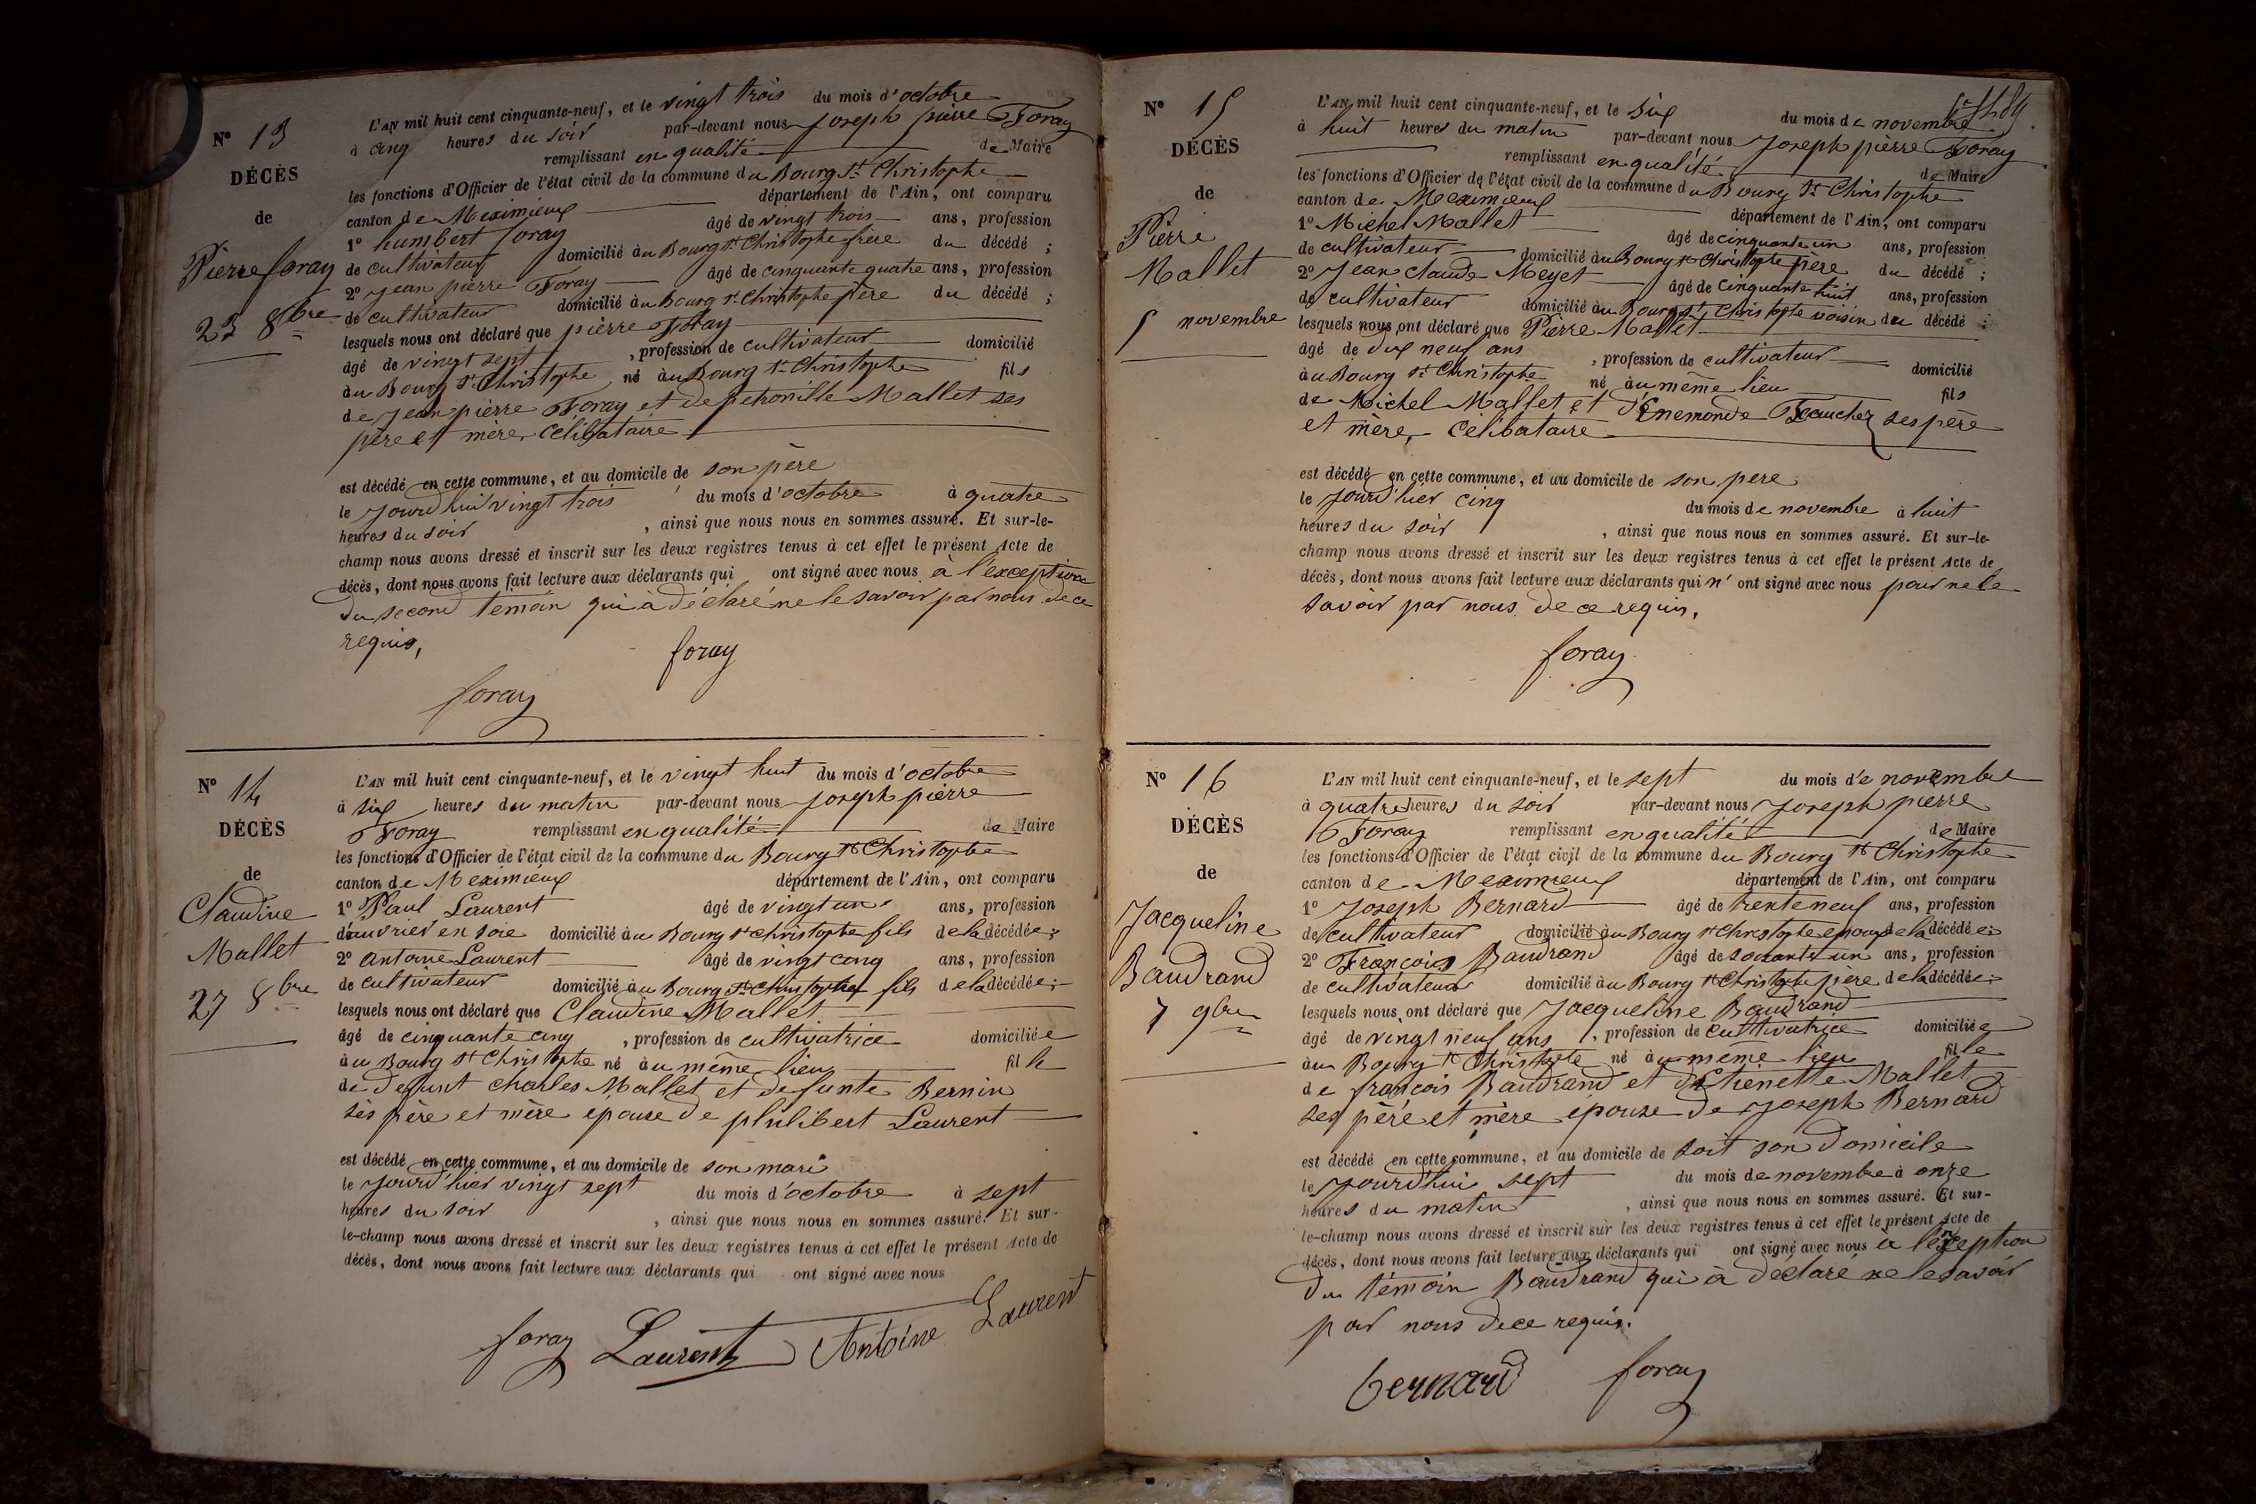 N° 13
DÉCÈS
de
Pierre foray
23 8bre
L'AN mil huit cent cinquante-neuf, et le vingt trois du mois d'octobre
à cinq heures du soir par-devant nous Joseph pierre Foray
remplissant en qualité de Maire
les fonctions d'Officier de l'état civil de la commune du Bourg St Christophe
canton de Meximieux département de l'Ain, ont comparu
1° humbert foray âgé de vingt trois ans, profession
de cultivateur domicilié au Bourg St Christophe frère du décédé ;
2° Jean pierre Foray âgé de cinquante quatre ans, profession
de cultivateur domicilié au Bourg St Christophe père du décédé ;
lesquels nous ont déclaré que pierre Foray
âgé de vingt sept , profession de cultivateur domicilié
au Bourg St Christophe né au Bourg St Christophe fils
de Jean pierre Foray et de petronille Mallet ses
père et mère, célibataire
est décédé en cette commune, et au domicile de son père
le jourd'hui vingt trois du mois d'octobre à quatre
heures du soir , ainsi que nous nous en sommes assuré. Et sur-le-
champ nous avons dressé et inscrit sur les deux registres tenus à cet effet le présent Acte de
décès, dont nous avons fait lecture aux déclarants qui ont signé avec nous à l'exception
du second témoin qui à déclaré ne le savoir par nous de ce
requis,
foray
foray
N° 14
DÉCÈS
de
Claudine
Mallet
27 8bre
L'AN mil huit cent cinquante-neuf, et le vingt huit du mois d'octobre
à six heures du matin par-devant nous Joseph pierre
Foray remplissant en qualité de Maire
les fonctions d'Officier de l'état civil de la commune du Bourg St Christophe
canton de Meximieux département de l'Ain, ont comparu
1° Paul Laurent âgé de vingt un ans, profession
d'ouvrier en soie domicilié au Bourg St Christophe fils de la décédée ;
2° Antoine Laurent âgé de vingt cinq ans, profession
de cultivateur domicilié au Bourg St Christophe fils de la décédée ;
lesquels nous ont déclaré que Claudine Mallet
âgé de cinquante cinq , profession de cultivatrice domiciliée
au Bourg St Christophe né au même lieu fille
de défunt Charles Mallet et défunte Bernin
ses père et mère épouse de philibert Laurent
est décédé en cette commune, et au domicile de son mari
le jourd'hier vingt sept du mois d'octobre à sept
heures du soir , ainsi que nous nous en sommes assuré. Et sur-
le-champ nous avons dressé et inscrit sur les deux registres tenus à cet effet le présent Acte de
décès, dont nous avons fait lecture aux déclarants qui ont signé avec nous
foray Laurent Antoine Laurent
N° 15
DÉCÈS
de
Pierre
Mallet
5 novembre
L'AN mil huit cent cinquante-neuf, et le six du mois de novembre
à huit heures du matin par-devant nous Joseph pierre Foray
remplissant en qualité de Maire
les fonctions d'Officier de l'état civil de la commune du Bourg St Christophe
canton de Meximieux département de l'Ain, ont comparu
1° Michel Mallet âgé de cinquante un ans, profession
de cultivateur domicilié au Bourg St Christophe père du décédé ;
2° Jean Claude Meyet âgé de cinquante huit ans, profession
de cultivateur domicilié au Bourg St Christophe voisin du décédé ;
lesquels nous ont déclaré que Pierre Mallet
âgé de dix neuf ans , profession de cultivateur domicilié
au Bourg St Christophe né au même lieu fils
de Michel Mallet et d'Enemonde Faucher ses père
et mère, celibataire
est décédé en cette commune, et au domicile de son père
le jourd'hier cinq du mois de novembre à huit
heures du soir , ainsi que nous nous en sommes assuré. Et sur-le-
champ nous avons dressé et inscrit sur les deux registres tenus à cet effet le présent Acte de
décès, dont nous avons fait lecture aux déclarants qui n'ont signé avec nous pour ne le
savoir par nous de ce requis,
foray
N° 16
DÉCÈS
de
Jacqueline
Baudrand
7 9bre
L'AN mil huit cent cinquante-neuf, et le sept du mois de novembre
à quatre heures du soir par-devant nous Joseph pierre
Foray remplissant en qualité de Maire
les fonctions d'Officier de l'état civil de la commune du Bourg St Christophe
canton de Meximieux département de l'Ain, ont comparu
1° Joseph Bernard âgé de trente neuf ans, profession
de cultivateur domicilié au Bourg St Christophe epoux de la décédée ;
2° François Baudrand âgé de soixante un ans, profession
de cultivateur domicilié au Bourg St Christophe père de la décédée ;
lesquels nous ont déclaré que Jacqueline Baudrand
âgé de vingt neuf ans , profession de cultivatrice domiciliée
au Bourg St Christophe né au même lieu fille
de françois Baudrand et d'Etiènette Mallet
ses père et mère épouse de Joseph Bernard
est décédé en cette commune, et au domicile de soit son domicile
le jourd'hui sept du mois de novembre à onze
heures du matin , ainsi que nous nous en sommes assuré. Et sur-
le-champ nous avons dressé et inscrit sur les deux registres tenus à cet effet le présent Acte de
décès, dont nous avons fait lecture aux déclarants qui ont signé avec nous à l'exception
du témoin Baudrand qui à déclaré ne le savoir
par nous de ce requis.
bernard foray